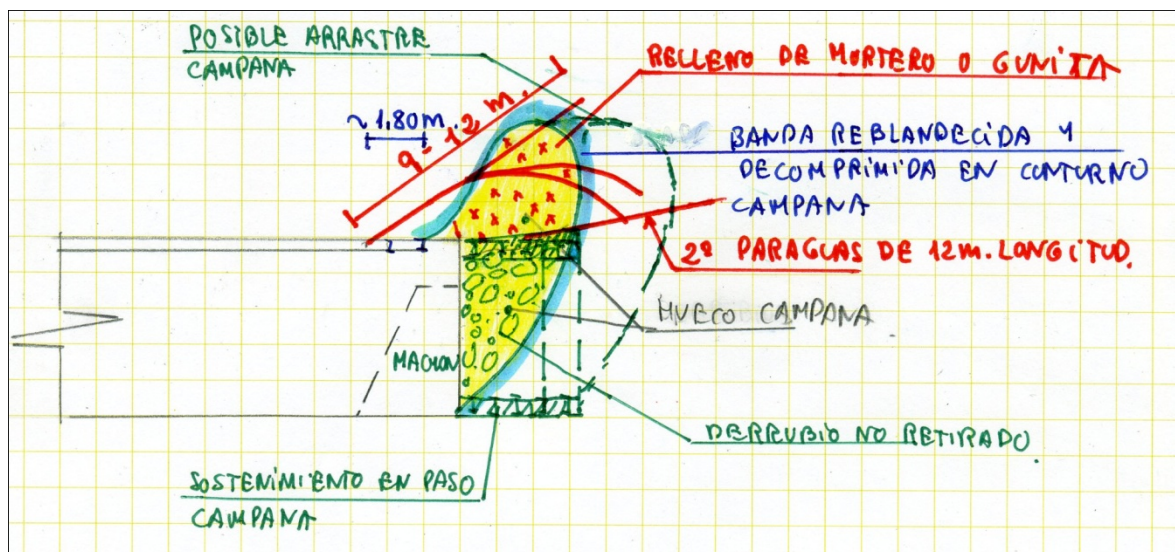 POSIBLE ARRASTRE
CAMPANA
RELLENO DE MORTERO O GUNITA
~1,80m.
9-12 m.
BANDA REBLANDECIDA Y
DECOMPRIMIDA EN CONTORNO
CAMPANA
2º PARAGUAS DE 12m. LONGITUD.
HUECO CAMPANA
MACHON
DERRUBIO NO RETIRADO.
SOSTENIMIENTO EN PASO
CAMPANA